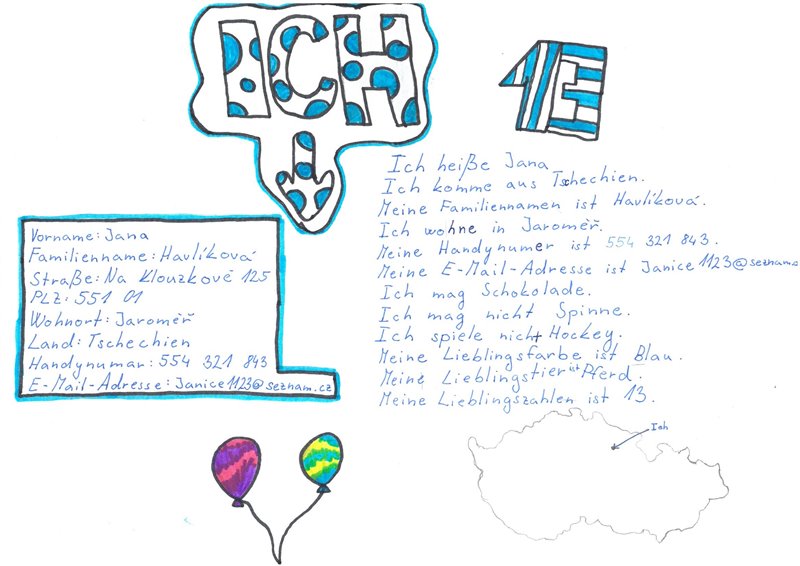 ICH
1E
Ich heiße Jana
Ich komme aus Tschechien.
Meine Familiennamen ist Havlíková.
Ich wohne in Jaroměř.
Meine Handynumer ist 554 321 843.
Meine E-Mail-Adresse ist Janice1123@seznam.c
Ich mag Schokolade.
Ich mag nicht Spinne.
Ich spiele nicht Hockey.
Meine Lieblingsfarbe ist Blau.
Meine Lieblingstier ist Pferd.
Meine Lieblingszahlen ist 13.
Vorname: Jana
Familienname: Havlíková
Straße: Na Klouzkově 125
PLZ: 551 01
Wohnort: Jaroměř
Land: Tschechien
Handynumar: 554 321 843
E-Mail-Adresse: Janice1123@seznam.cz
Ich